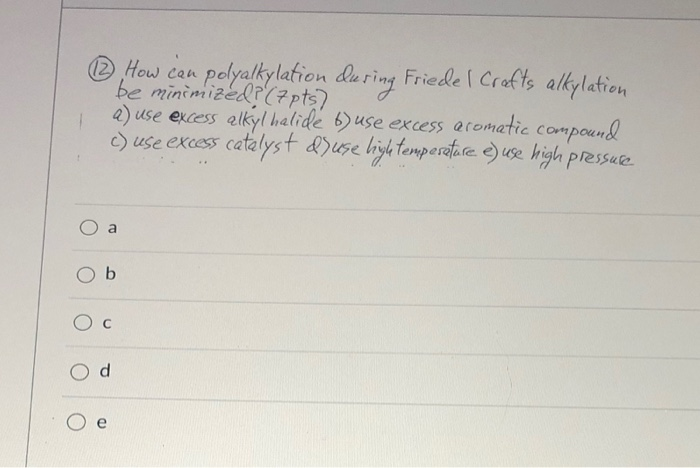 (12) How can polyalkylation during Friedel Crafts alkylation
be minimized? (7pts)
a) use excess alkyl halide b) use excess aromatic compound
c) use excess catalyst d) use high temperature e) use high pressure
a
b
c
d
e